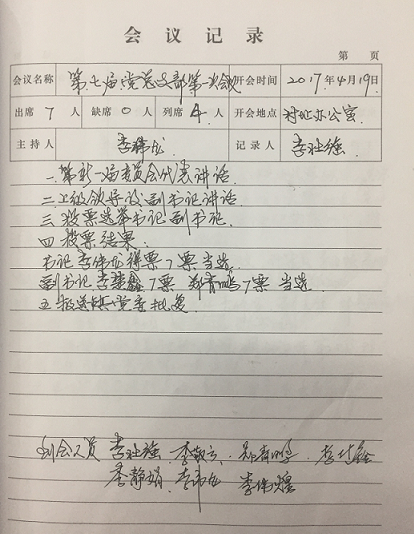 会议记录
第 页
会议名称 第七届党总支部第一次会议 开会时间 2017年4月19日
出席 7 人 缺席 0 人 列席 4 人 开会地点 村址办公室
主持人 李伟龙 记录人 李社强
一.第新一届委员会代表讲话
二.上级领导 副书记讲话.
三.投票选举书记副书记.
四.投票结果.
书记李伟龙得票7票 当选.
副书记李 7票 郑育鹏7票 当选.
五.报送镇党委批复
到会人员 李社强. 李 郑育鹏 李
李静娟. 李伟龙 李伟煌